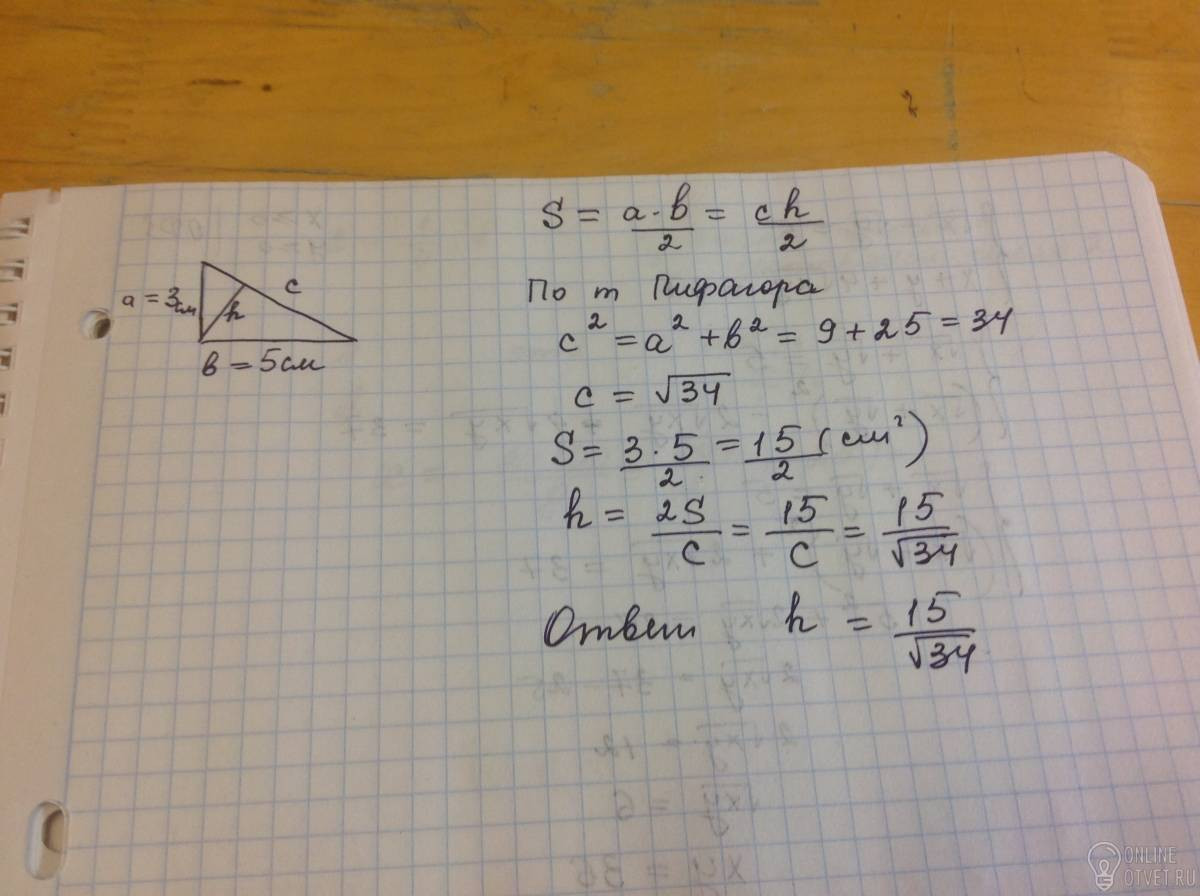 a = 3см
h
c
в = 5см
S = a·в/2 = ch/2
По т Пифагора
c² = a² + в² = 9 + 25 = 34
c = √34
S = 3·5/2 = 15/2 (см²)
h = 2S/C = 15/C = 15/√34
Ответ h = 15/√34
ONLINE
OTVET.RU